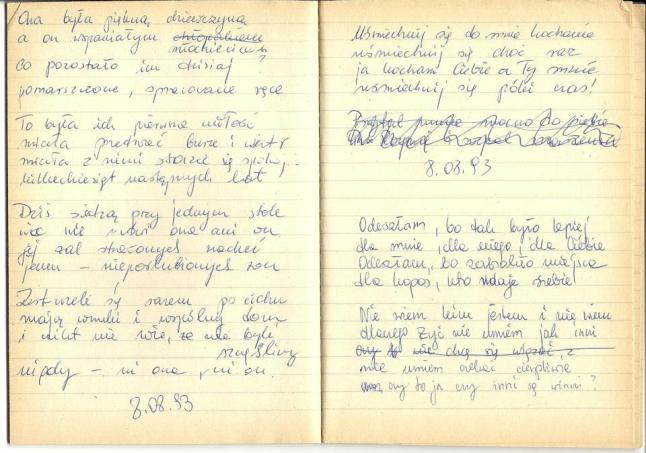 Ona była piękną dziewczyną
a on wspaniałym chłopakiem
młodzieńcem
Co pozostało im dzisiaj ?
pomarszczone, spracowane ręce
To była ich pierwsza miłość
miała przetrwać burze i wiatr
miała z nimi starzeć się
kilkadziesiąt następnych lat
Dziś siedzą przy jednym stole
nic nie mówi ona ani on
jej żal straconych nadziei
jemu – nieposlubionych żon
Zestarzeli się razem po cichu
mają wnuki i wspólny dom
i nikt nie wie, że nie byli
szczęśliwy
nigdy – ni ona, ni on.
8.08.93
Uśmiechnij się do mnie kochanie
uśmiechnij się choć raz
ja kocham Ciebie a Ty mnie
uśmiechnij się póki czas!
mocno do siebie
8.08.93
Odeszłam, bo tak było lepiej
dla mnie, dla niego, dla Ciebie
Odeszłam, bo zabrakło miejsca
dla kogoś, kto udaje siebie
Nie wiem kim jestem i nie wiem
dlaczego żyć nie umiem jak inni
czy to nie chcę się
nie umiem czekać cierpliwie
czy to ja czy inni są winni?